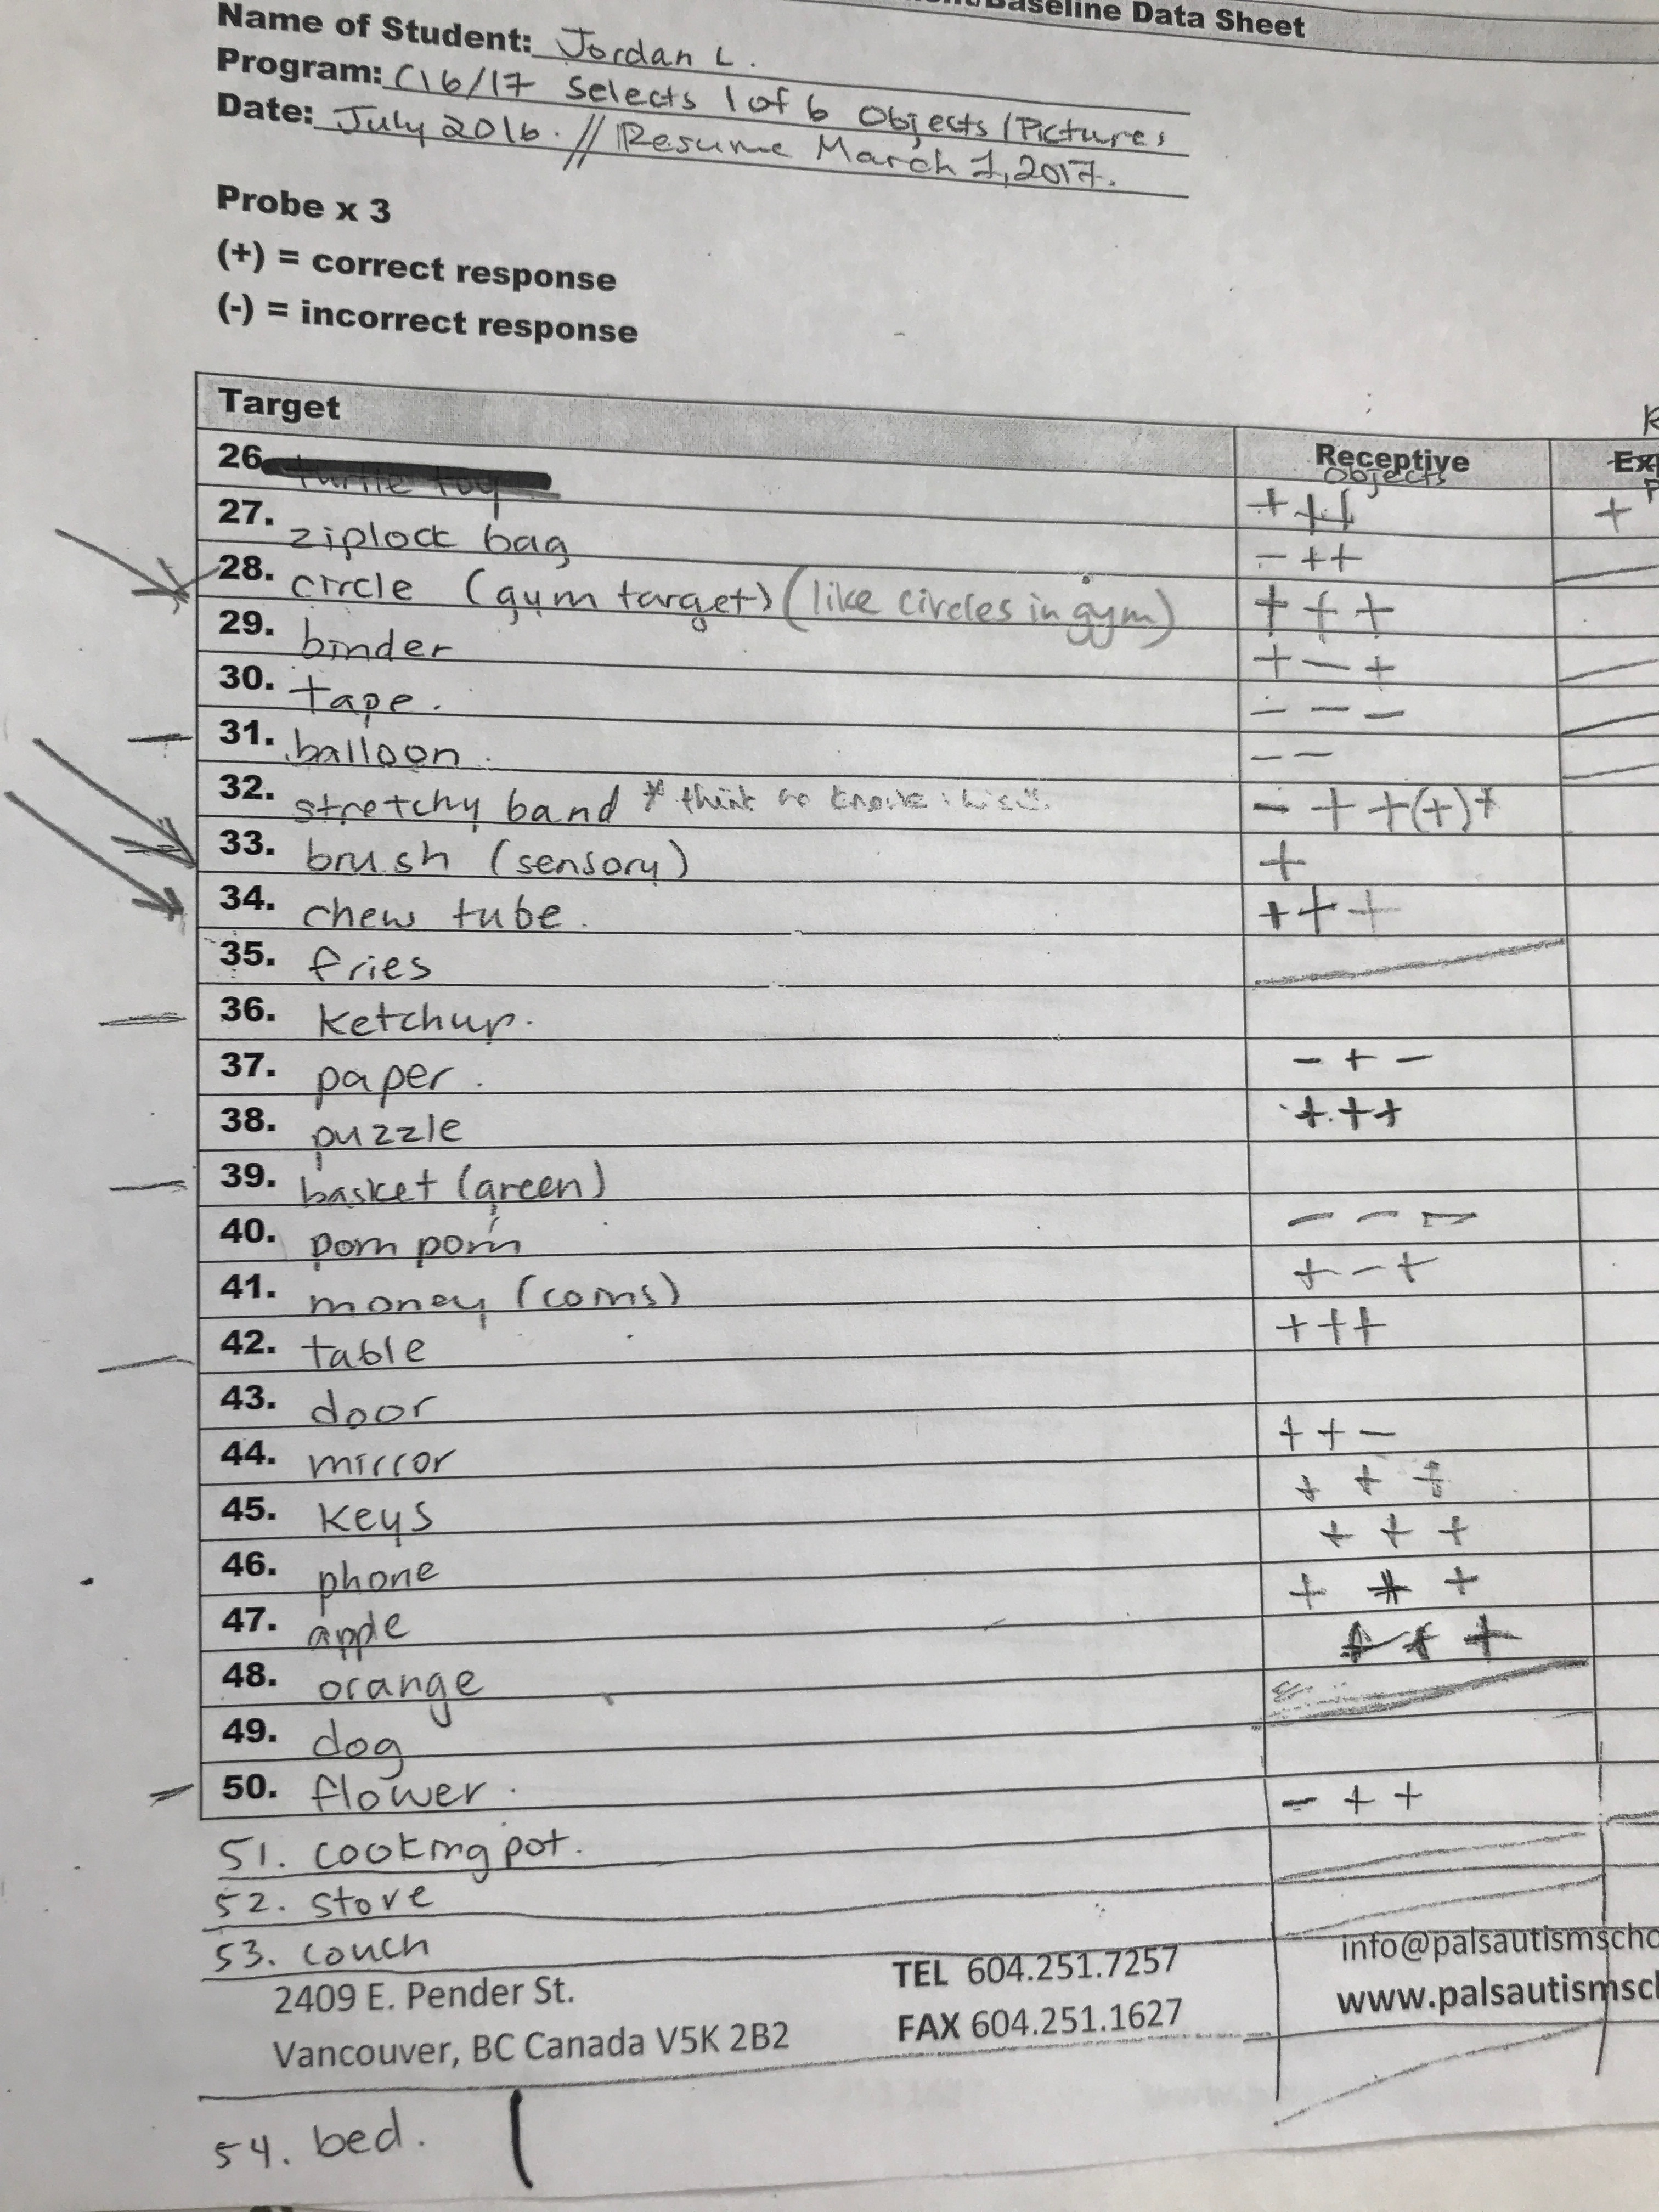 Baseline Data Sheet
Name of Student: Jordan L.
Program: C16/17 Selects 1 of 6 Objects/Pictures
Date: July 2016. // Resume March 1, 2017.
Probe x 3
(+) = correct response
(-) = incorrect response
Target Receptive
Objects
26. turtle toy + + + +
27. ziplock bag - + +
28. circle (gym target) (like circles in gym) + + +
29. binder + - +
30. tape. - - -
31. balloon. - -
32. stretchy band * think he knows this - + + (+)*
33. brush (sensory) +
34. chew tube. + + +
35. fries
36. ketchup.
37. paper. - + -
38. puzzle + + +
39. basket (green)
40. pom pom - - -
41. money (coins) + - +
42. table + + +
43. door
44. mirror + + -
45. keys + + +
46. phone + + +
47. apple + + +
48. orange + + +
49. dog
50. flower.
- + +
51. cooking pot.
52. stove
53. couch
2409 E. Pender St. TEL 604.251.7257 info@palsautismscho
Vancouver, BC Canada V5K 2B2 FAX 604.251.1627 www.palsautismscl
54. bed.